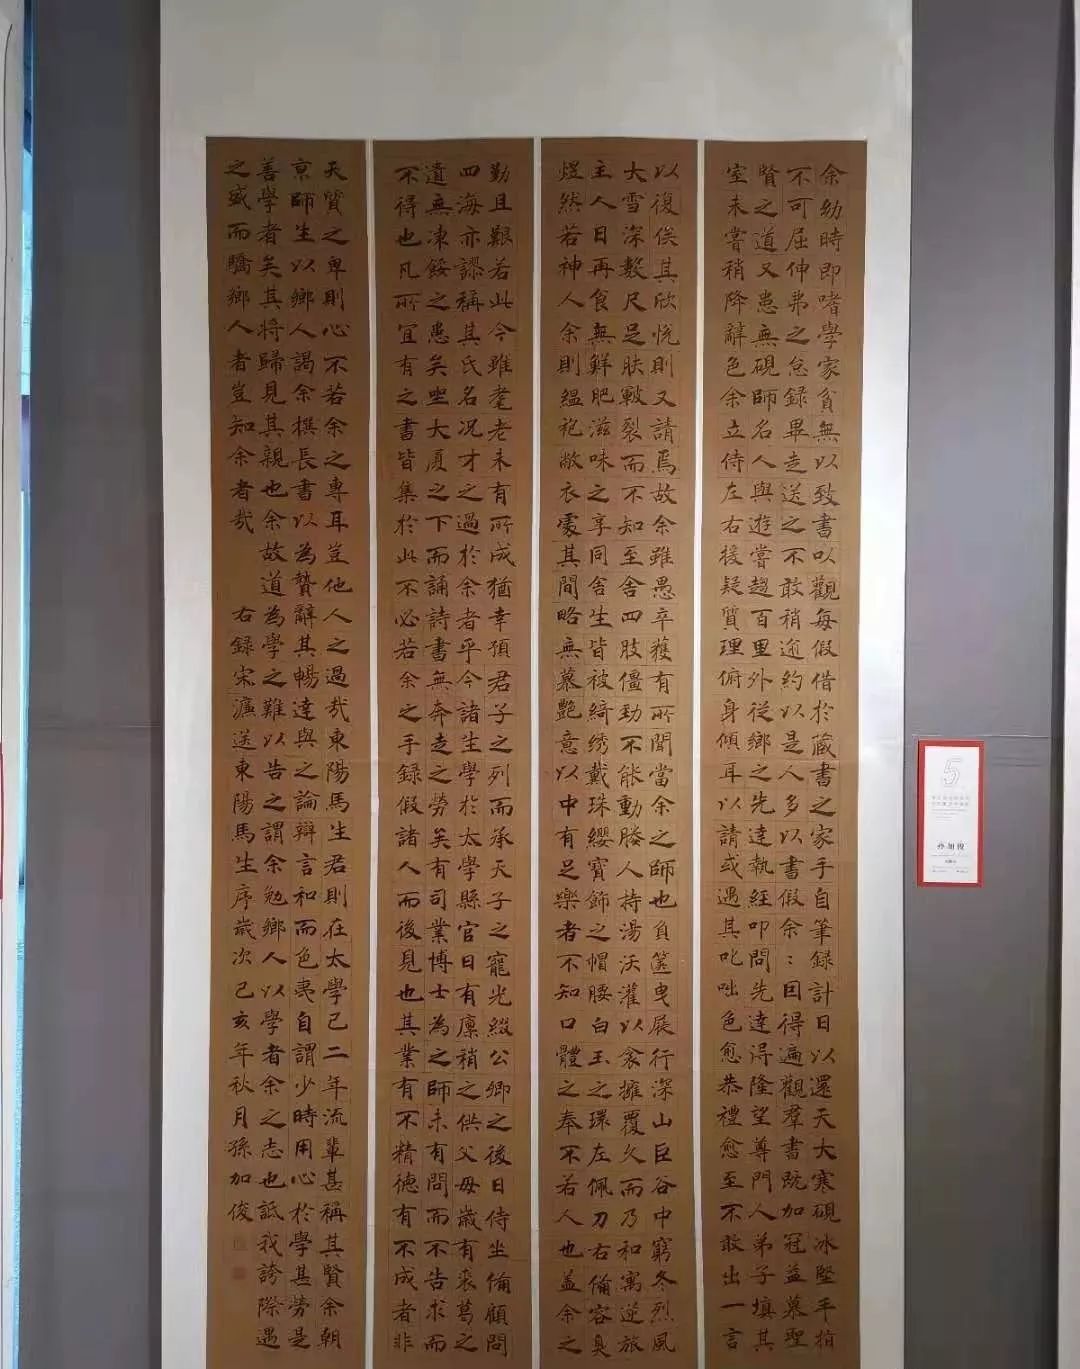 余幼時即嗜學家貧無以致書以觀每假借於藏書之家手自筆録計日以還天大寒硯冰堅手指
不可屈伸弗之怠録畢走送之不敢稍逾約以是人多以書假余:因得遍觀羣書既加冠益慕聖
賢之道又患無硯師名人與遊嘗趨百里外從鄉之先達執經叩問先達得隆望尊門人弟子填其
室未嘗稍降辭色余立侍左右援疑質理俯身傾耳以請或遇其叱咄色愈恭禮愈至不敢出一言
以復俟其欣悦則又請焉故余雖愚卒獲有所聞當余之師也負篋曳屣行深山巨谷中窮冬烈風
大雪深數尺足肤皸裂而不知至舍四肢僵勁不能動媵人持湯沃灌以衾擁覆久而乃和寓逆旅
主人日再食無鮮肥滋味之享同舍生皆被綺綉戴珠纓寶飾之帽腰白玉之環左佩刀右備容臭
煜然若神人余則緼袍敝衣處其間略無慕艷意以中有足樂者不知口體之奉不若人也蓋余之
勤且艱若此今雖耄老未有所成猶幸預君子之列而承天子之寵光綴公卿之後日侍坐備顧問
四海亦謬稱其氏名况才之過於余者乎今諸生學於太學縣官日有廩稍之供父母歲有裘葛之
遺無凍餒之患矣坐大厦之下而誦詩書無奔走之勞矣有司業博士為之師未有問而不告求而
不得也凡所宜有之書皆集於此不必若余之手録假諸人而後見也其業有不精德有不成者非
天質之卑則心不若余之專耳豈他人之過哉東陽馬生君則在太學已二年流輩甚稱其賢余朝
京師生以鄉人謁余撰長書以為贄辭其暢達與之論辯言和而色夷自謂少時用心於學甚勞是
善學者矣其將歸見其親也余故道為學之難以告之謂余勉鄉人以學者余之志也詆我誇際遇
之盛而驕鄉人者豈知余者哉 右録宋濂送東陽馬生序歲次己亥年秋月孫加俊
5
孙加俊